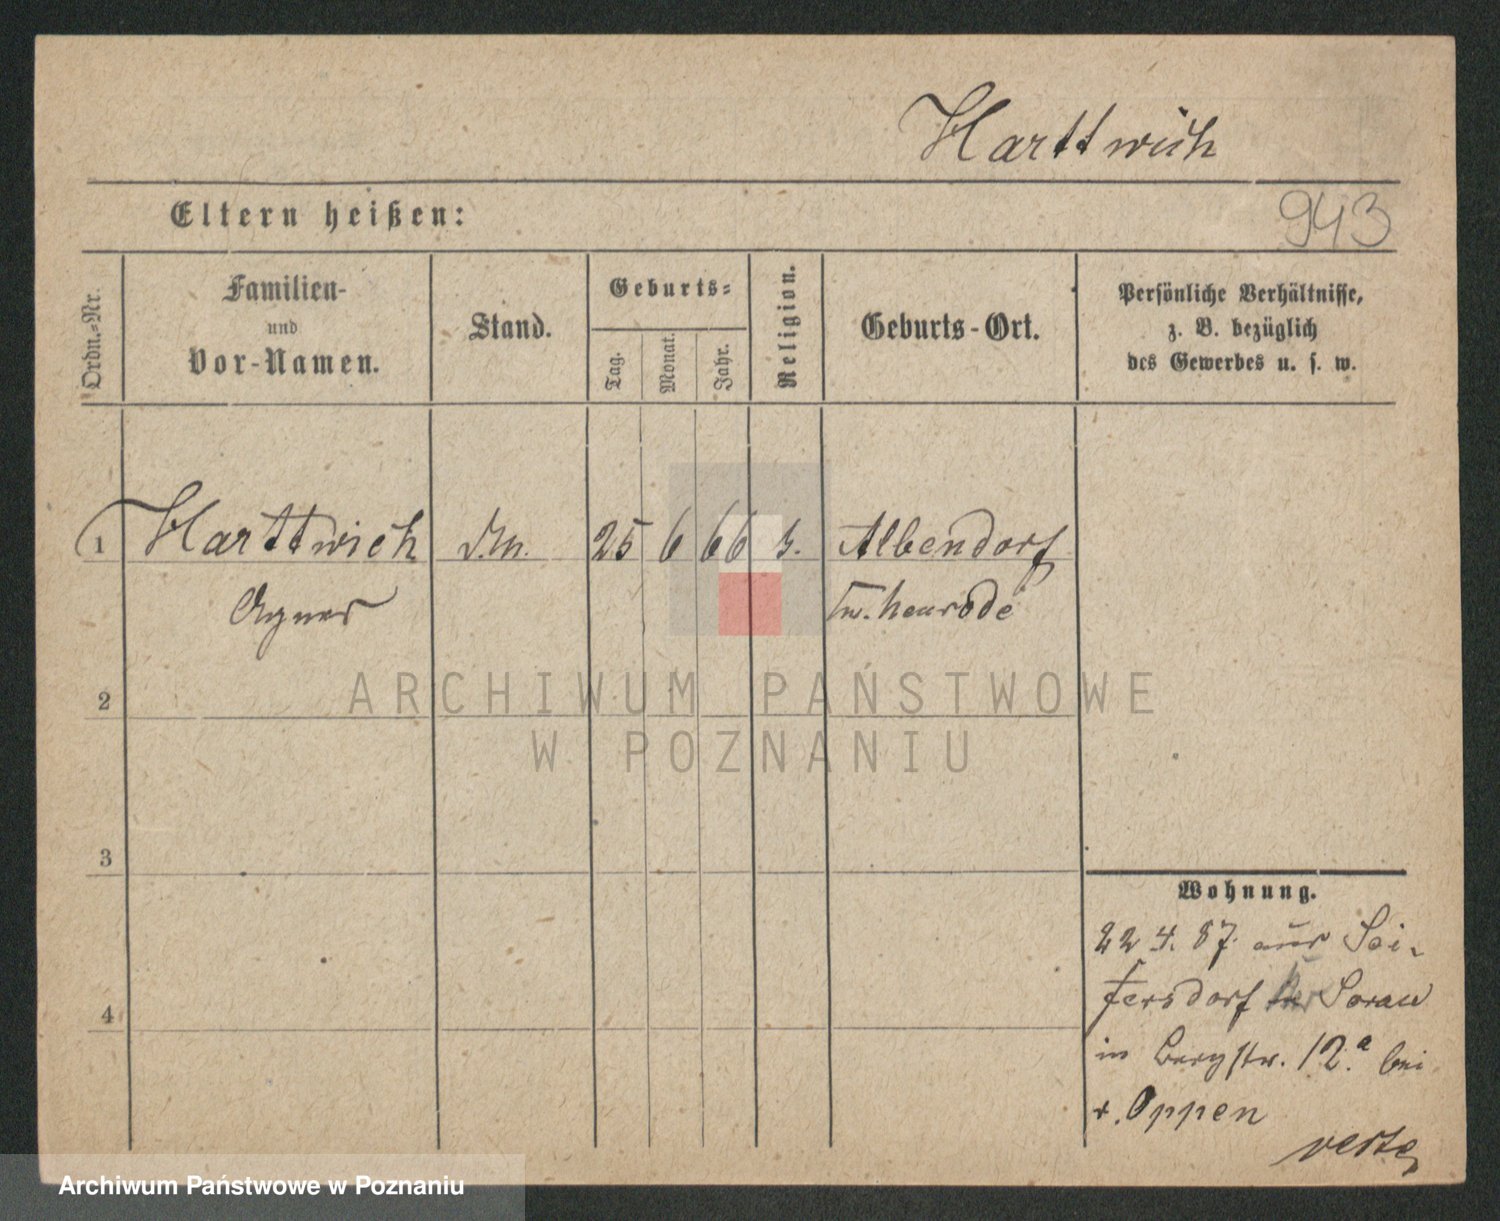 Harttwich
Eltern heißen:
943
Ordn.-Nr.
Familien-
und
Vor-Namen.
Stand.
Geburts-
Tag.
Monat.
Jahr.
Religion.
Geburts-Ort.
Persönliche Verhältnisse,
z. B. bezüglich
des Gewerbes u. s. w.
1 Harttwich 25 6 66 Albendorf
Agnes
2
ARCHIWUM PAŃSTWOWE
W POZNANIU
3
Wohnung.
22 4. 87. aus Sei-
fersdorf Kr Sorau
4
in Bergstr. 12.a bei
v. Oppen
verte
Archiwum Państwowe w Poznaniu